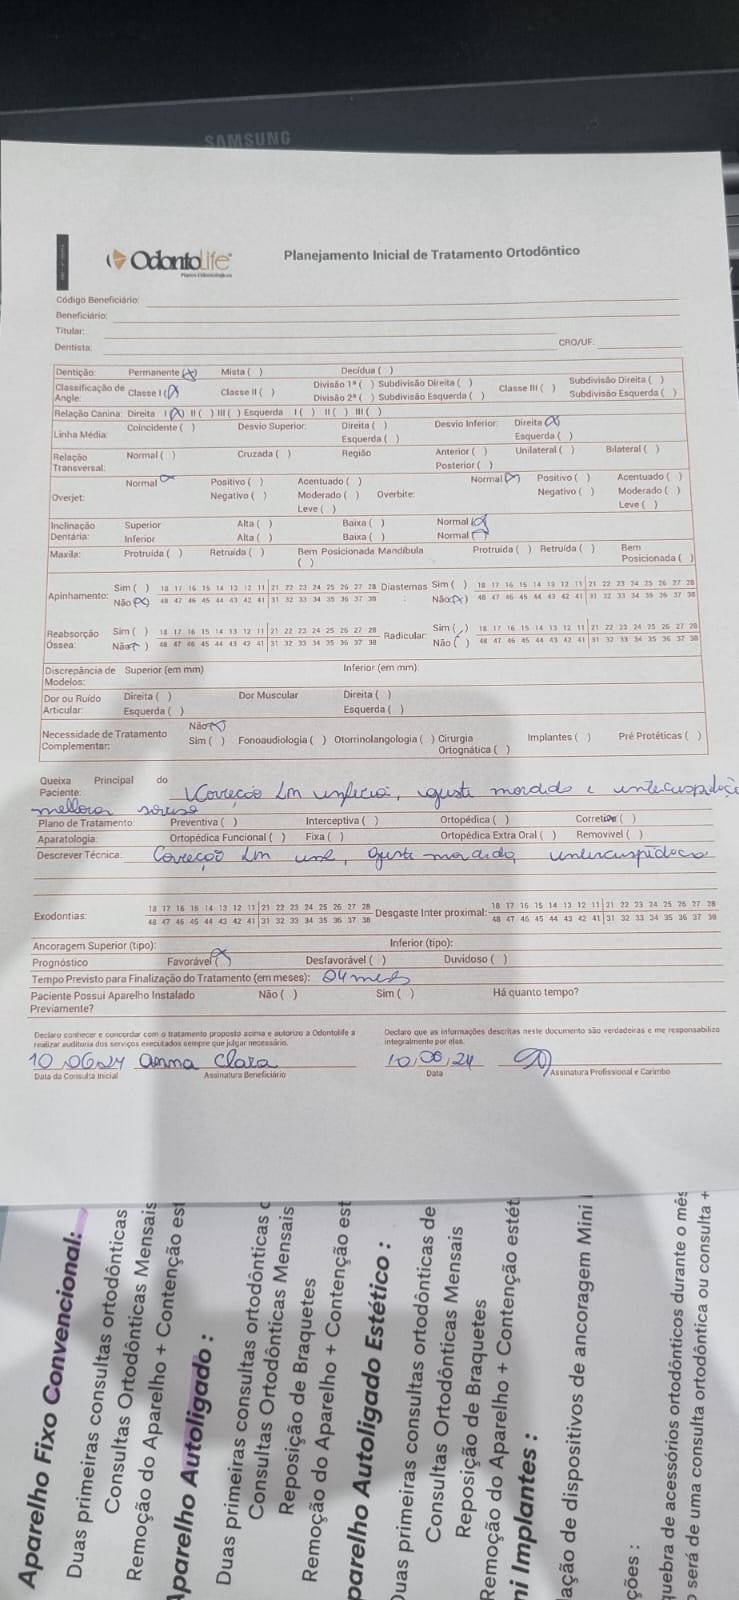 SAMSUNG
OdontoLife
Planos Odontológicos
Planejamento Inicial de Tratamento Ortodôntico
Código Beneficiário:
Beneficiário:
Titular:
Dentista: CRO/UF:
Dentição: Permanente (x) Mista ( ) Decídua ( )
Classificação de Angle: Classe I (x) Classe II ( ) Divisão 1ª ( ) Subdivisão Direita ( ) Classe III ( ) Subdivisão Direita ( )
Divisão 2ª ( ) Subdivisão Esquerda ( ) Subdivisão Esquerda ( )
Relação Canina: Direita I (x) II ( ) III ( ) Esquerda I ( ) II ( ) III ( )
Linha Média: Coincidente ( ) Desvio Superior: Direita ( ) Desvio Inferior: Direita (x)
Esquerda ( ) Esquerda ( )
Relação Transversal: Normal ( ) Cruzada ( ) Região Anterior ( ) Unilateral ( ) Bilateral ( )
Posterior ( )
Overjet: Normal (x) Positivo ( ) Acentuado ( ) Overbite: Normal (x) Positivo ( ) Acentuado ( )
Negativo ( ) Moderado ( ) Negativo ( ) Moderado ( )
Leve ( ) Leve ( )
Inclinação Dentária: Superior Alta ( ) Baixa ( ) Normal (x)
Inferior Alta ( ) Baixa ( ) Normal (x)
Maxila: Protruída ( ) Retruída ( ) Bem Posicionada ( ) Mandíbula Protruída ( ) Retruída ( ) Bem Posicionada ( )
Apinhamento: Sim ( ) 18 17 16 15 14 13 12 11 21 22 23 24 25 26 27 28 Diastemas: Sim ( ) 18 17 16 15 14 13 12 11 21 22 23 24 25 26 27 28
Não (x) 48 47 46 45 44 43 42 41 31 32 33 34 35 36 37 38 Não (x) 48 47 46 45 44 43 42 41 31 32 33 34 35 36 37 38
Reabsorção Óssea: Sim ( ) 18 17 16 15 14 13 12 11 21 22 23 24 25 26 27 28 Radicular: Sim ( ) 18 17 16 15 14 13 12 11 21 22 23 24 25 26 27 28
Não (x) 48 47 46 45 44 43 42 41 31 32 33 34 35 36 37 38 Não ( ) 48 47 46 45 44 43 42 41 31 32 33 34 35 36 37 38
Discrepância de Modelos: Superior (em mm) Inferior (em mm):
Dor ou Ruído Articular: Direita ( ) Dor Muscular Direita ( )
Esquerda ( ) Esquerda ( )
Necessidade de Tratamento Complementar: Não (x)
Sim ( ) Fonoaudiologia ( ) Otorrinolangologia ( ) Cirurgia Ortognática ( ) Implantes ( ) Pré Protéticas ( )
Queixa Principal do Paciente: Correção Lm inferior, ajuste mordida e intercuspidação
melhora sorriso
Plano de Tratamento: Preventiva ( ) Interceptiva ( ) Ortopédica ( ) Corretiva ( )
Aparatologia: Ortopédica Funcional ( ) Fixa ( ) Ortopédica Extra Oral ( ) Removível ( )
Descrever Técnica: Correção Lm inf, ajuste mordida, intercuspidação
Exodontias: 18 17 16 15 14 13 12 11 21 22 23 24 25 26 27 28 Desgaste Inter proximal: 18 17 16 15 14 13 12 11 21 22 23 24 25 26 27 28
48 47 46 45 44 43 42 41 31 32 33 34 35 36 37 38 48 47 46 45 44 43 42 41 31 32 33 34 35 36 37 38
Ancoragem Superior (tipo): Inferior (tipo):
Prognóstico Favorável (x) Desfavorável ( ) Duvidoso ( )
Tempo Previsto para Finalização do Tratamento (em meses): 04 meses
Paciente Possui Aparelho Instalado Previamente? Não ( ) Sim ( ) Há quanto tempo?
Declaro conhecer e concordar com o tratamento proposto acima e autorizo a Odontolife a
realizar auditoria dos serviços executados sempre que julgar necessário.
Declaro que as informações descritas neste documento são verdadeiras e me responsabilizo
integralmente por elas.
10.06.24 Anna Clara 10,06,24
Data da Consulta Inicial Assinatura Beneficiário Data Assinatura Profissional e Carimbo
Aparelho Fixo Convencional:
Duas primeiras consultas ortodônticas
Consultas Ortodônticas Mensais
Remoção do Aparelho + Contenção est
Aparelho Autoligado :
Duas primeiras consultas ortodônticas
Consultas Ortodônticas Mensais
Reposição de Braquetes
Remoção do Aparelho + Contenção est
parelho Autoligado Estético :
Duas primeiras consultas ortodônticas de
Consultas Ortodônticas Mensais
Reposição de Braquetes
Remoção do Aparelho + Contenção estét
ni Implantes :
lação de dispositivos de ancoragem Mini
ções :
quebra de acessórios ortodônticos durante o mês
o será de uma consulta ortodôntica ou consulta +